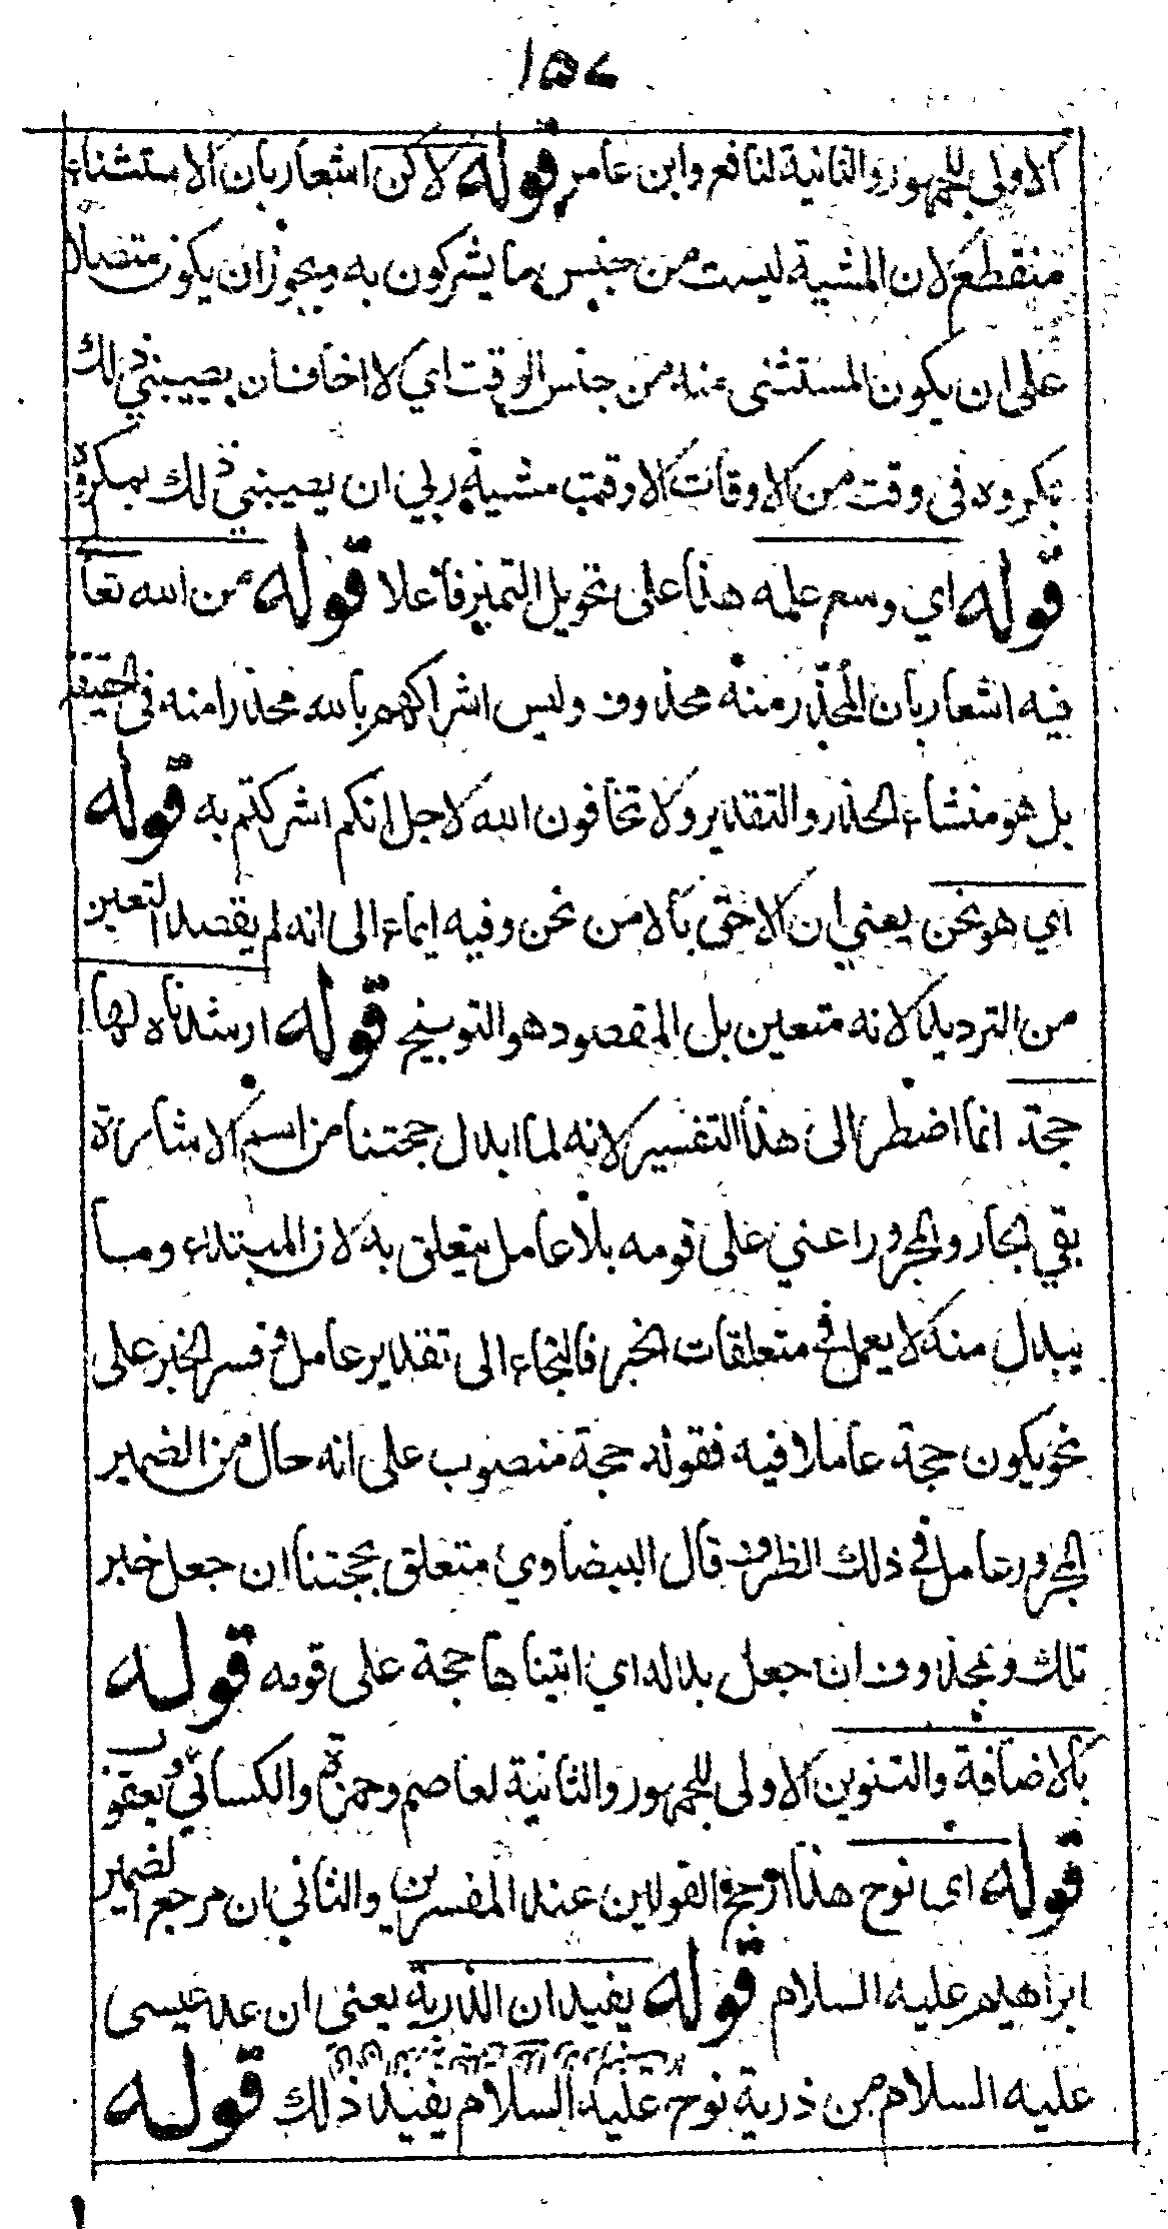 ١٥٧
الاولى للجمهور والثانية لنافع وابن عامر قوله لاكن اشعار بان الاستثناء
منقطع لان المشية ليست من جنس ما يشركون به ويجوز ان يكون متصلا
على ان يكون المستثنى منه من جنس الوقت اي لا اخاف ان يصيبني ذلك
بكروه في وقت من الاوقات الا وقت مشية ربي ان يصيبني ذلك بمكروه
قوله اي وسع علمه هذا على تحويل التميز فاعلا قوله من الله تعا
فيه اشعار بان المحذر منه محذوف وليس اشراكهم بالله محذرا منه في الحقيقة
بل هو منشاء الحذر والتقدير ولا تخافون الله لاجل انكم اشركتم به قوله
اي هو نحن يعني ان الاحق بالامن نحن وفيه ايماء الى انه لم يقصد التعين
من الترديد لانه متعين بل المقصود هو التوبيخ قوله ارشدناه لها
حجة انما اضطر الى هذا التفسير لانه لما ابدل حجتنا من اسم الاشارة
بقي الجار والمجرور اعني على قومه بلا عامل يتعلق به لان المبتداء وما
يبدل منه لا يعمل في متعلقات الخبر فالتجاء الى تقدير عامل وفسر الخبر على
نحو يكون حجة عاملا فيه فقوله حجة منصوب على انه حال من الضمير
المجرور عامل في ذلك الظرف قال البيضاوي متعلق بحجتنا ان جعل خبر
تلك وبمحذوف ان جعل بدله اي اتيناها حجة على قومه قوله
بالاضافة والتنوين الاولى للجمهور والثانية لعاصم وحمزة والكسائي ويعقوب
قوله اى نوح هذا ارجح القولين عند المفسرين والثاني ان مرجع الضمير
ابراهيم عليه السلام قوله يفيد ان الذرية يعنى ان عد عيسى
عليه السلام من ذرية نوح عليه السلام يفيد ذلك قوله